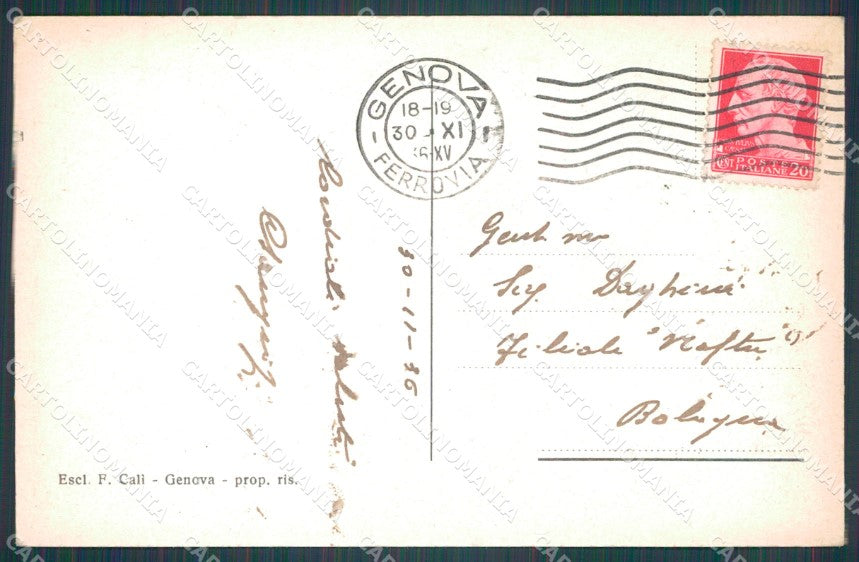 GENOVA
18-19
30 XI
36-XV
FERROVIA
POSTE
ITALIANE 20
Cordiali saluti
30-11-36
Gent mo
Sig Daghini
Filiale "Nafta"
Bologna
Escl. F. Calì - Genova - prop. ris.
CARTOLINOMANIA